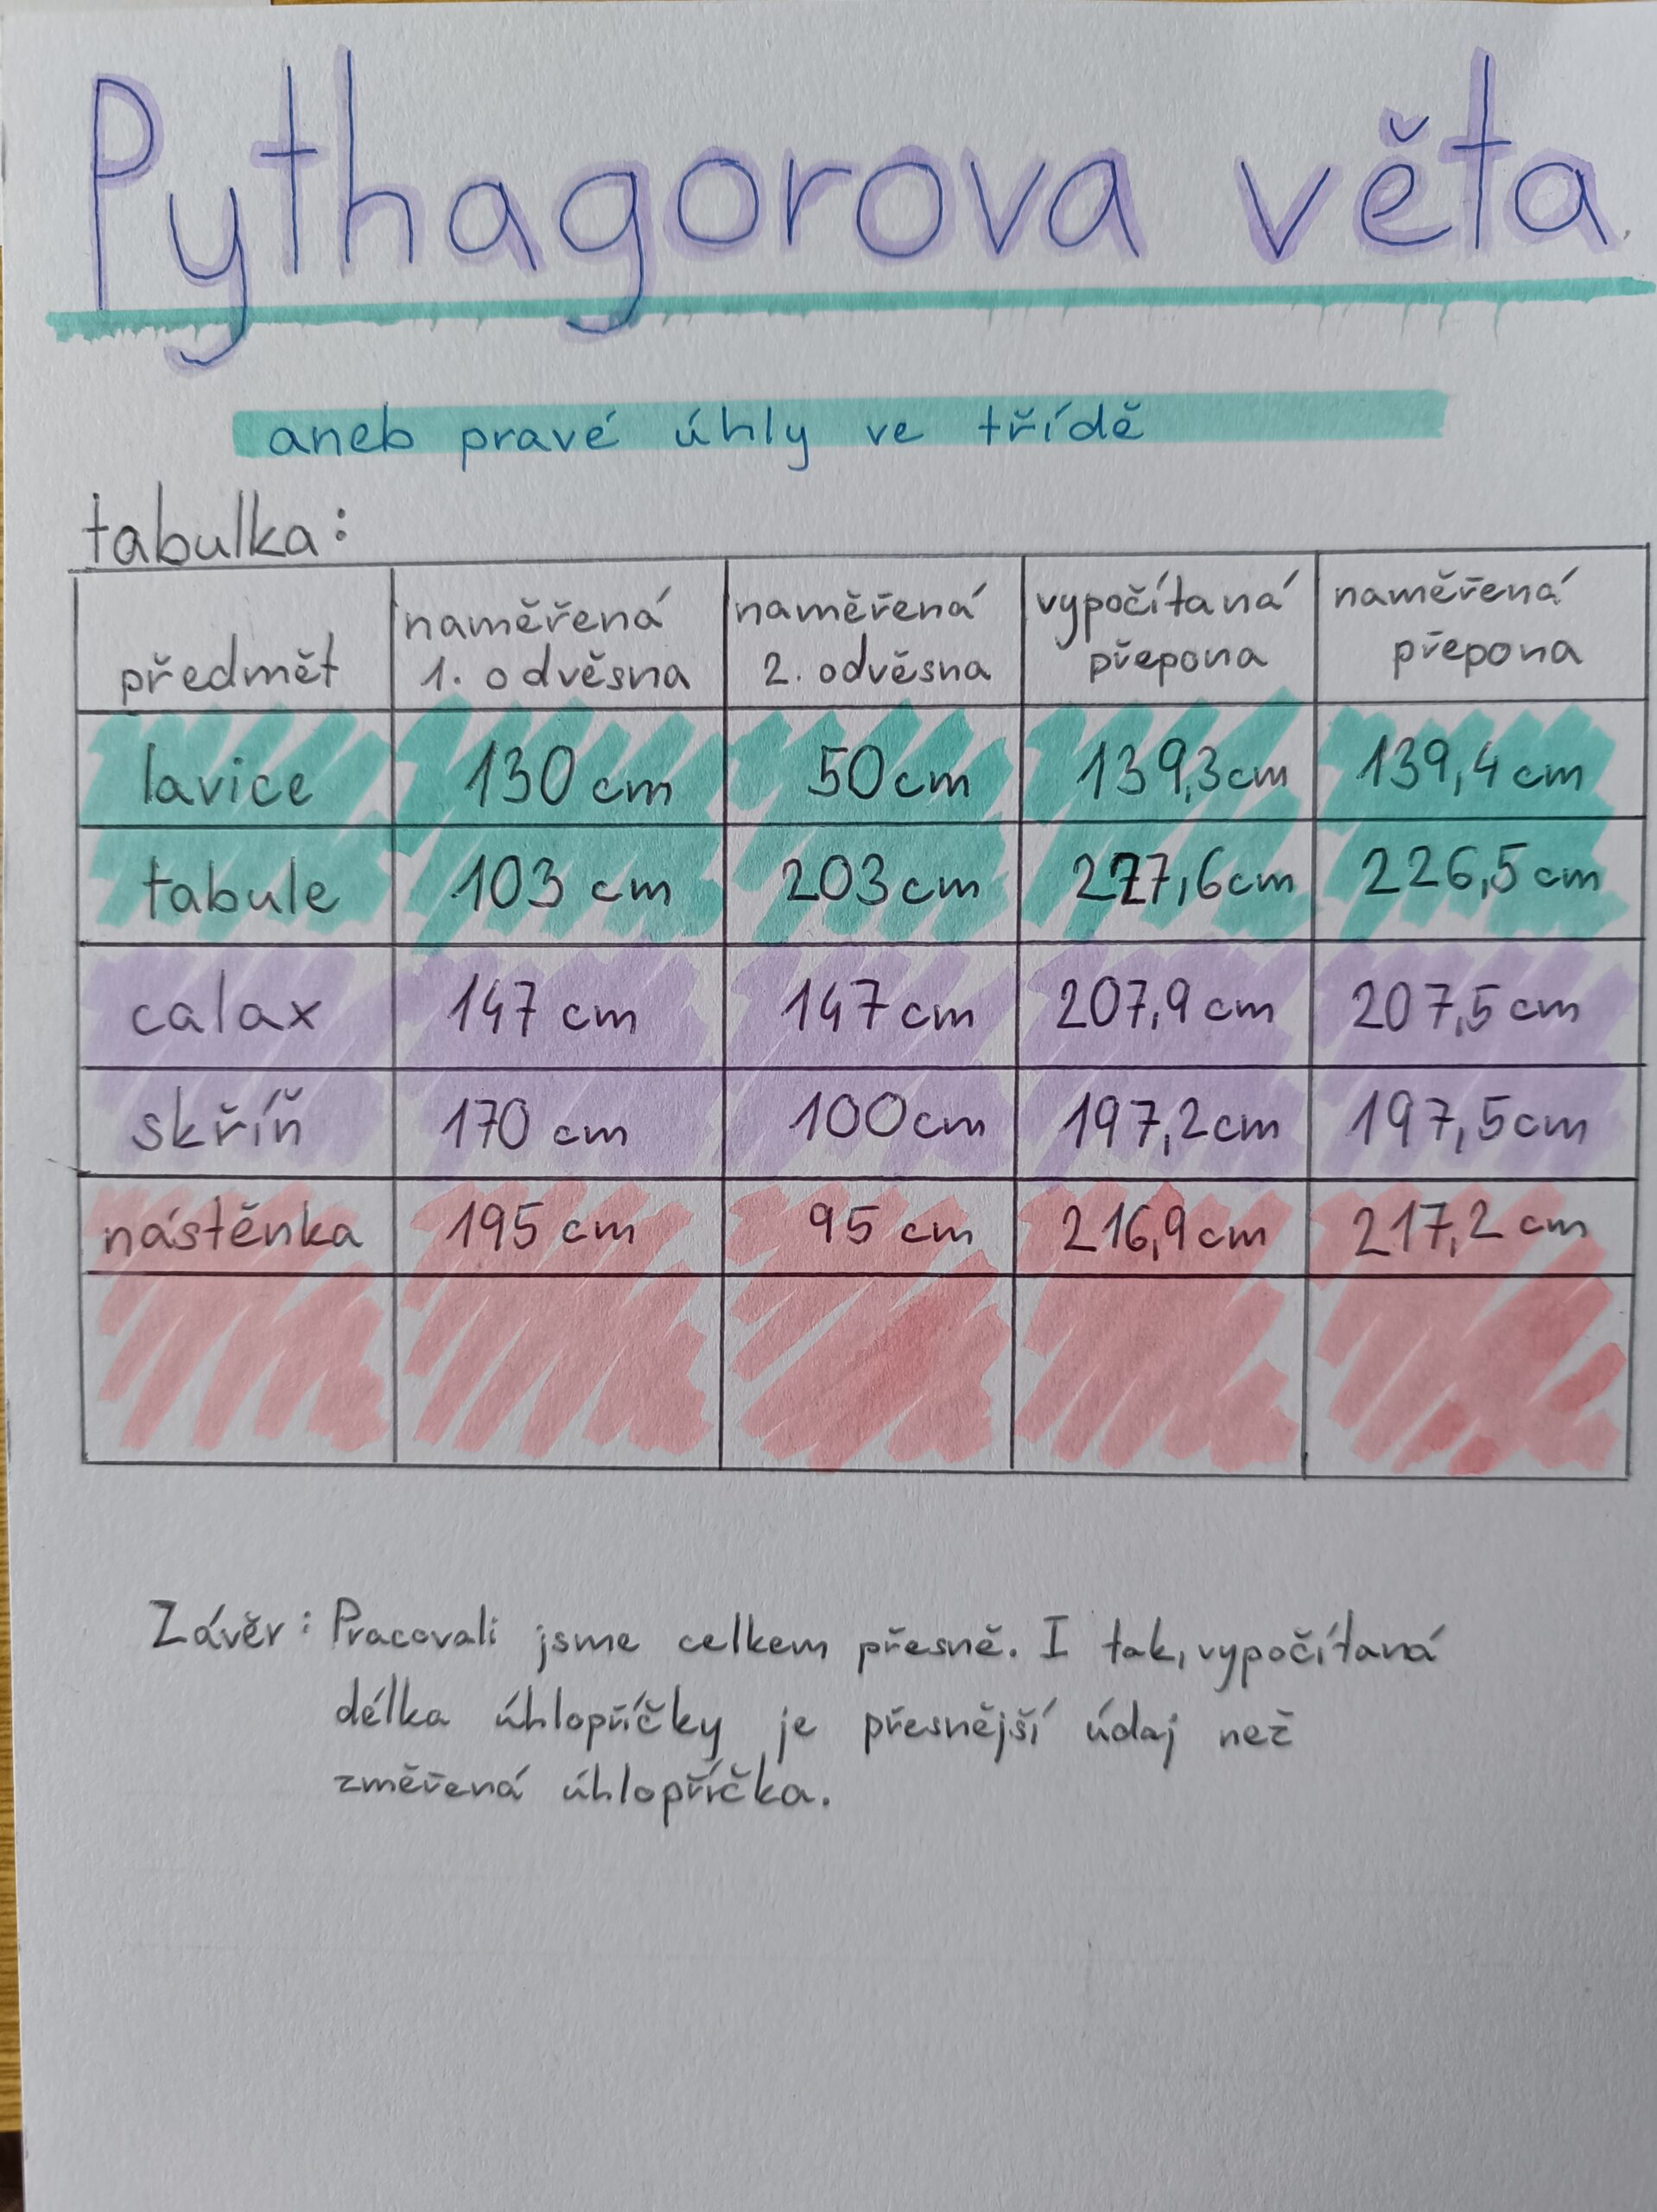 Pythagorova věta
aneb pravé úhly ve třídě
tabulka:
předmět naměřená 1. odvěsna naměřená 2. odvěsna vypočítaná přepona naměřená přepona
lavice 130 cm 50 cm 139,3 cm 139,4 cm
tabule 103 cm 203 cm 227,6 cm 226,5 cm
calax 147 cm 147 cm 207,9 cm 207,5 cm
skříň 170 cm 100 cm 197,2 cm 197,5 cm
nástěnka 195 cm 95 cm 216,9 cm 217,2 cm
Závěr: Pracovali jsme celkem přesně. I tak, vypočítaná
délka úhlopříčky je přesnější údaj než
změřená úhlopříčka.